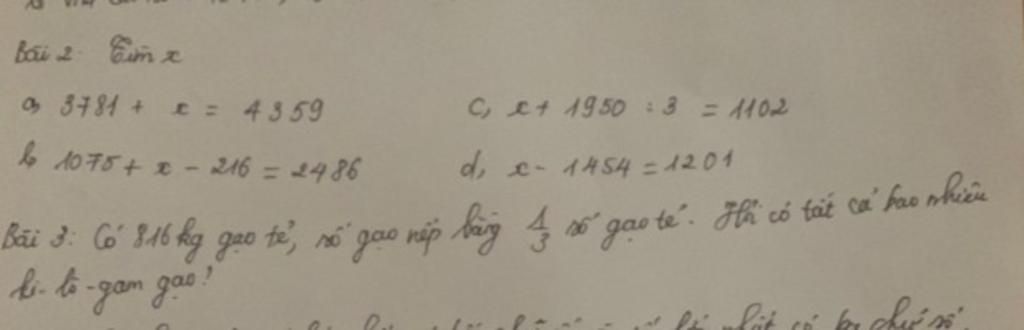 Bài 2: Tìm x
a, 3781 + x = 4359 c, x + 1950 : 3 = 1102
b, 1075 + x - 216 = 2486 d, x - 1454 = 1201
Bài 3: Có 816 kg gạo tẻ, số gạo nếp bằng 1/3 số gạo tẻ. Hỏi có tất cả bao nhiêu
ki-lô-gam gạo?